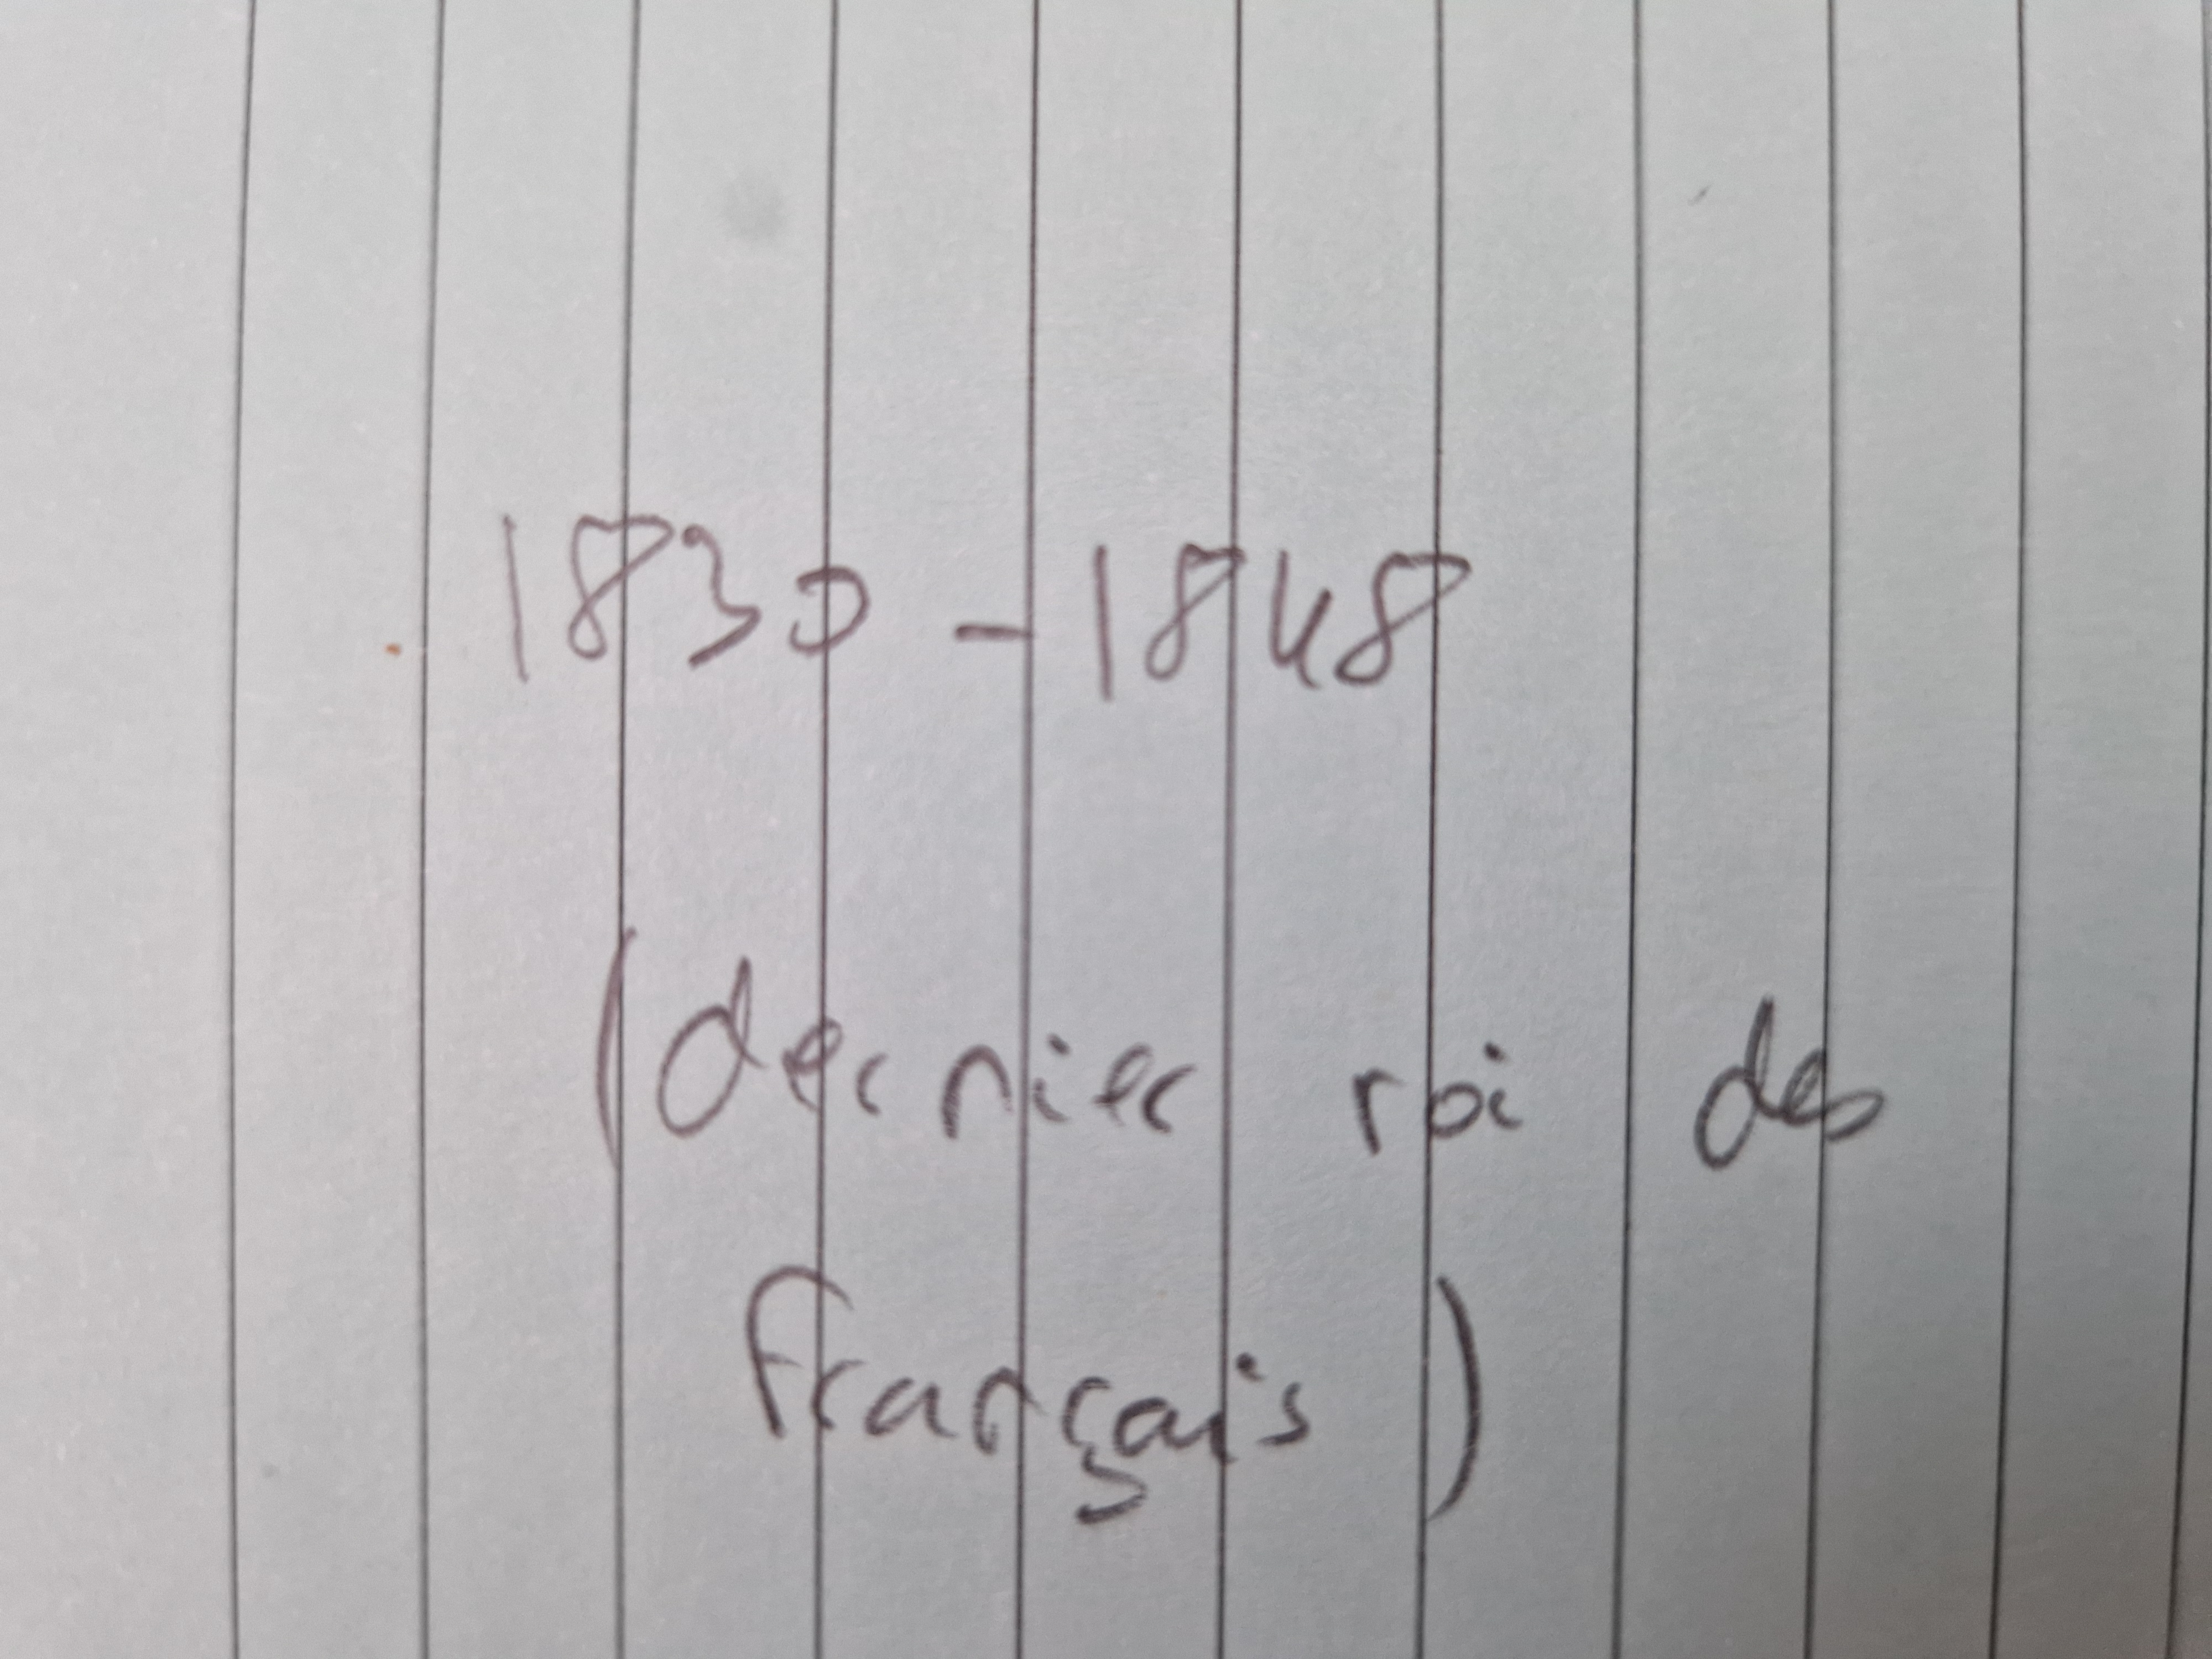 1830 - 1848
(dernier roi de
français)